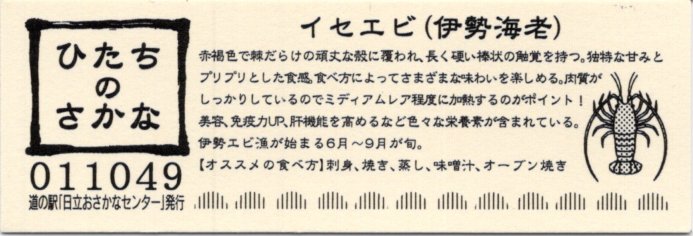 ひたち
の
さかな
011049
道の駅「日立おさかなセンター」発行
イセエビ(伊勢海老)
赤褐色で棘だらけの頑丈な殻に覆われ、長く硬い棒状の触覚を持つ。独特な甘みと
プリプリとした食感。食べ方によってさまざまな味わいを楽しめる。肉質が
しっかりしているのでミディアムレア程度に加熱するのがポイント!
美容、免疫力UP、肝機能を高めるなど色々な栄養素が含まれている。
伊勢エビ漁が始まる6月〜9月が旬。
【オススメの食べ方】刺身、焼き、蒸し、味噌汁、オーブン焼き